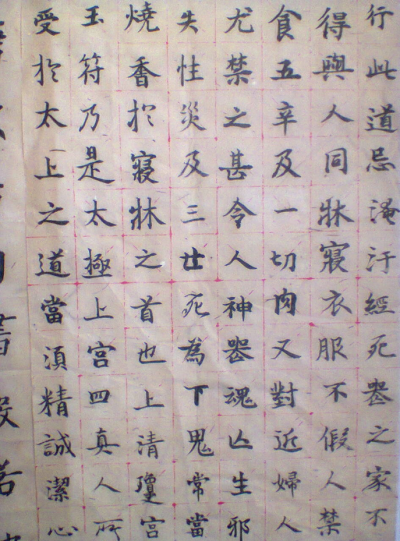 行此道忌淹汙經死喪之家不
得與人同牀寢衣服不假人禁
食五辛及一切肉又對近婦人
尤禁之甚令人神喪魂亡生邪
失性災及三世死為下鬼常當
燒香於寢牀之首也上清瓊宮
玉符乃是太極上宮四真人所
受於太上之道當須精誠潔心
書般若